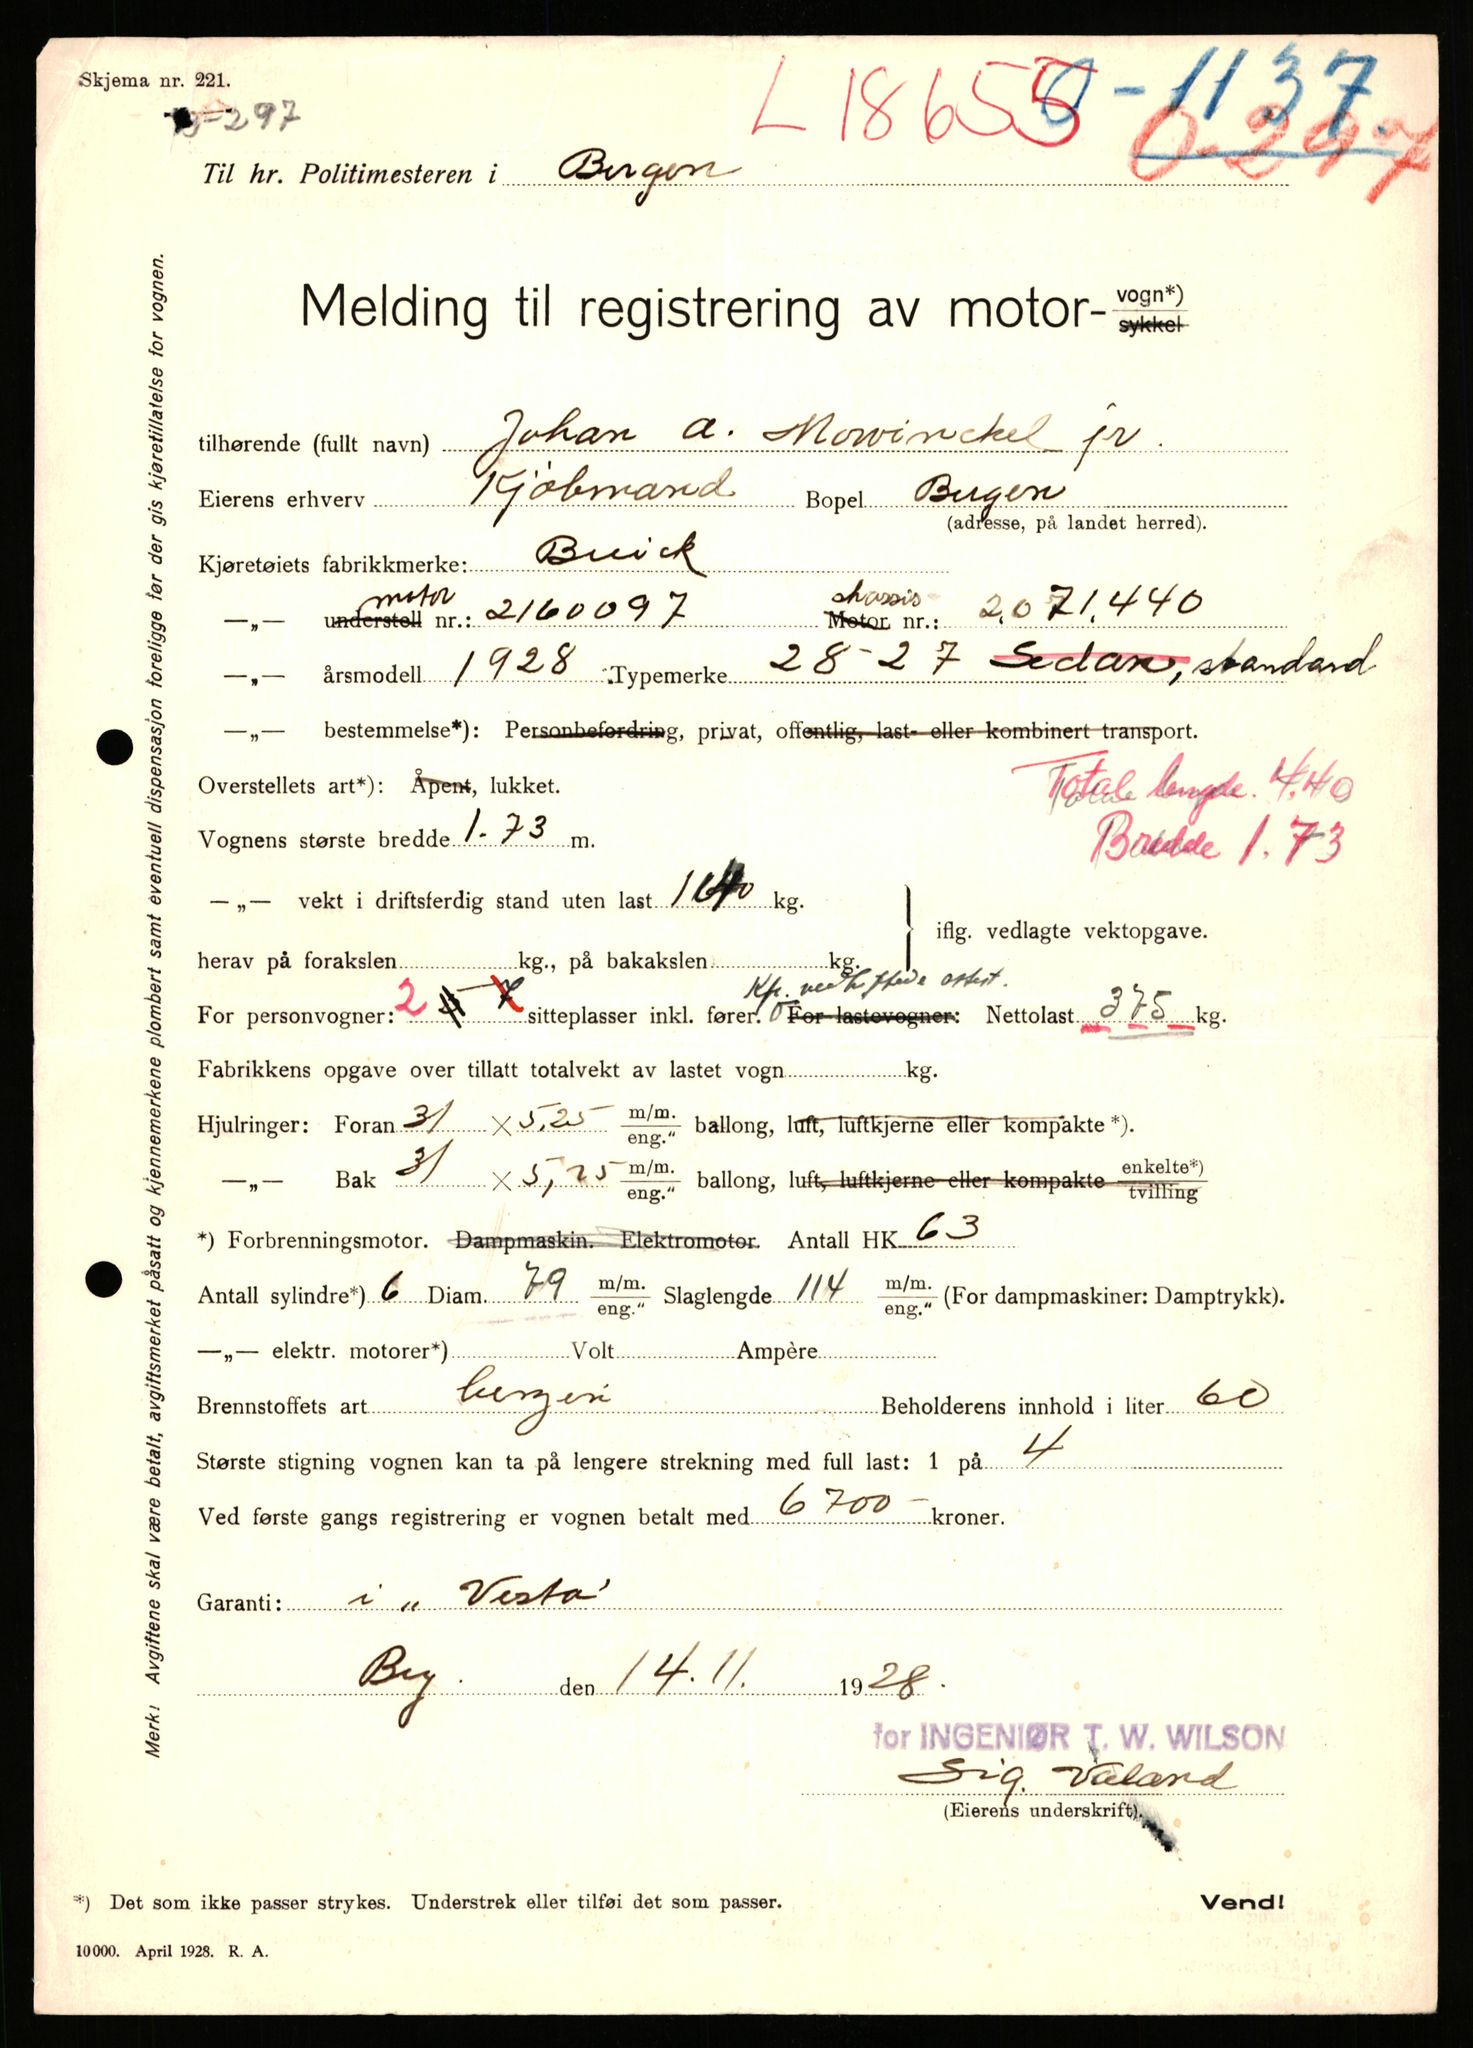 Skjema nr. 221.
L 18655 O-1137
-297 O-297
Til hr. Politimesteren i Bergen
Melding til registrering av motor- vogn*)
sykkel
tilhørende (fullt navn) Johan A. Mowinckel jr.
Eierens erhverv Kjöbmand Bopel Bergen
(adresse, på landet herred).
Kjøretøiets fabrikkmerke: Buick
motor chassis
—„— understell nr.: 2160097 Motor nr.: 2.071.440
—„— årsmodell 1928 Typemerke 28-27 Sedan, standard
—„— bestemmelse*): Personbefordring, privat, offentlig, last- eller kombinert transport.
Overstellets art*): Åpent, lukket.
Total lengde. 4.40
Vognens største bredde 1.73 m.
Bredde 1.73
—„— vekt i driftsferdig stand uten last kg.
iflg. vedlagte vektopgave.
herav på forakslen kg., på bakakslen kg.
Kfr. vedheftede attest.
For personvogner: 2 sitteplasser inkl. fører. For lastevogner: Nettolast 375 kg.
Fabrikkens opgave over tillatt totalvekt av lastet vogn kg.
Hjulringer: Foran 31 × 5,25 m/m. eng." ballong, luft, luftkjerne eller kompakte*).
—„— Bak 31 × 5,25 m/m. eng." ballong, luft, luftkjerne eller kompakte enkelte*) tvilling
*) Forbrenningsmotor. Dampmaskin. Elektromotor. Antall HK. 63
Antall sylindre*) 6 Diam. 79 m/m. eng." Slaglengde 114 m/m. eng." (For dampmaskiner: Damptrykk).
—„— elektr. motorer*) Volt Ampère
Brennstoffets art benzin Beholderens innhold i liter 60
Største stigning vognen kan ta på lengere strekning med full last: 1 på 4
Ved første gangs registrering er vognen betalt med 6700- kroner.
Garanti: i „Vesta"
Brg. den 14.11. 1928.
for INGENIØR T. W. WILSON
Sig. Valand
(Eierens underskrift).
*) Det som ikke passer strykes. Understrek eller tilføi det som passer. Vend!
10000. April 1928. R. A.
Merk! Avgiftene skal være betalt, avgiftsmerket påsatt og kjennemerkene plombert samt eventuell dispensasjon foreligge før der gis kjøretillatelse for vognen.